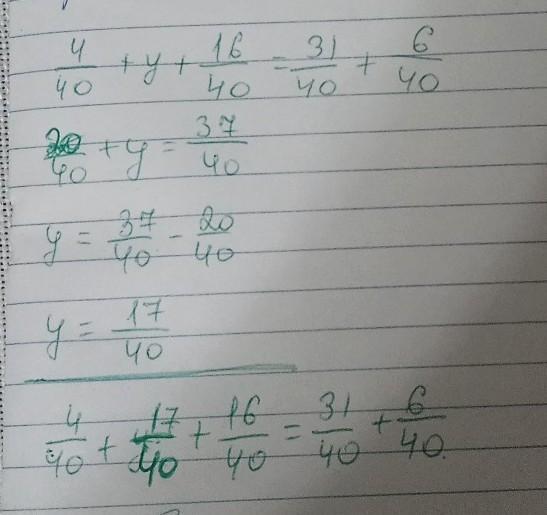 4/40 + y + 16/40 = 31/40 + 6/40
20/40 + y = 37/40
y = 37/40 - 20/40
y = 17/40
4/40 + 17/40 + 16/40 = 31/40 + 6/40.